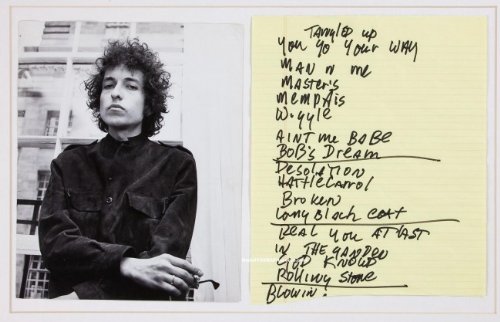 TANGLED up
You Go Your WAY
MAN N me
MASTER'S
Memphis
Wiggle
AINT me BABE
BOB'S DREAM
DESOLATION
HATTIE CARROL
BROKEN
Long Black COAT
REAL You AT LAST
IN THE GARDEN
GOD KNOWS
Rolling Stone
BLOWIN!